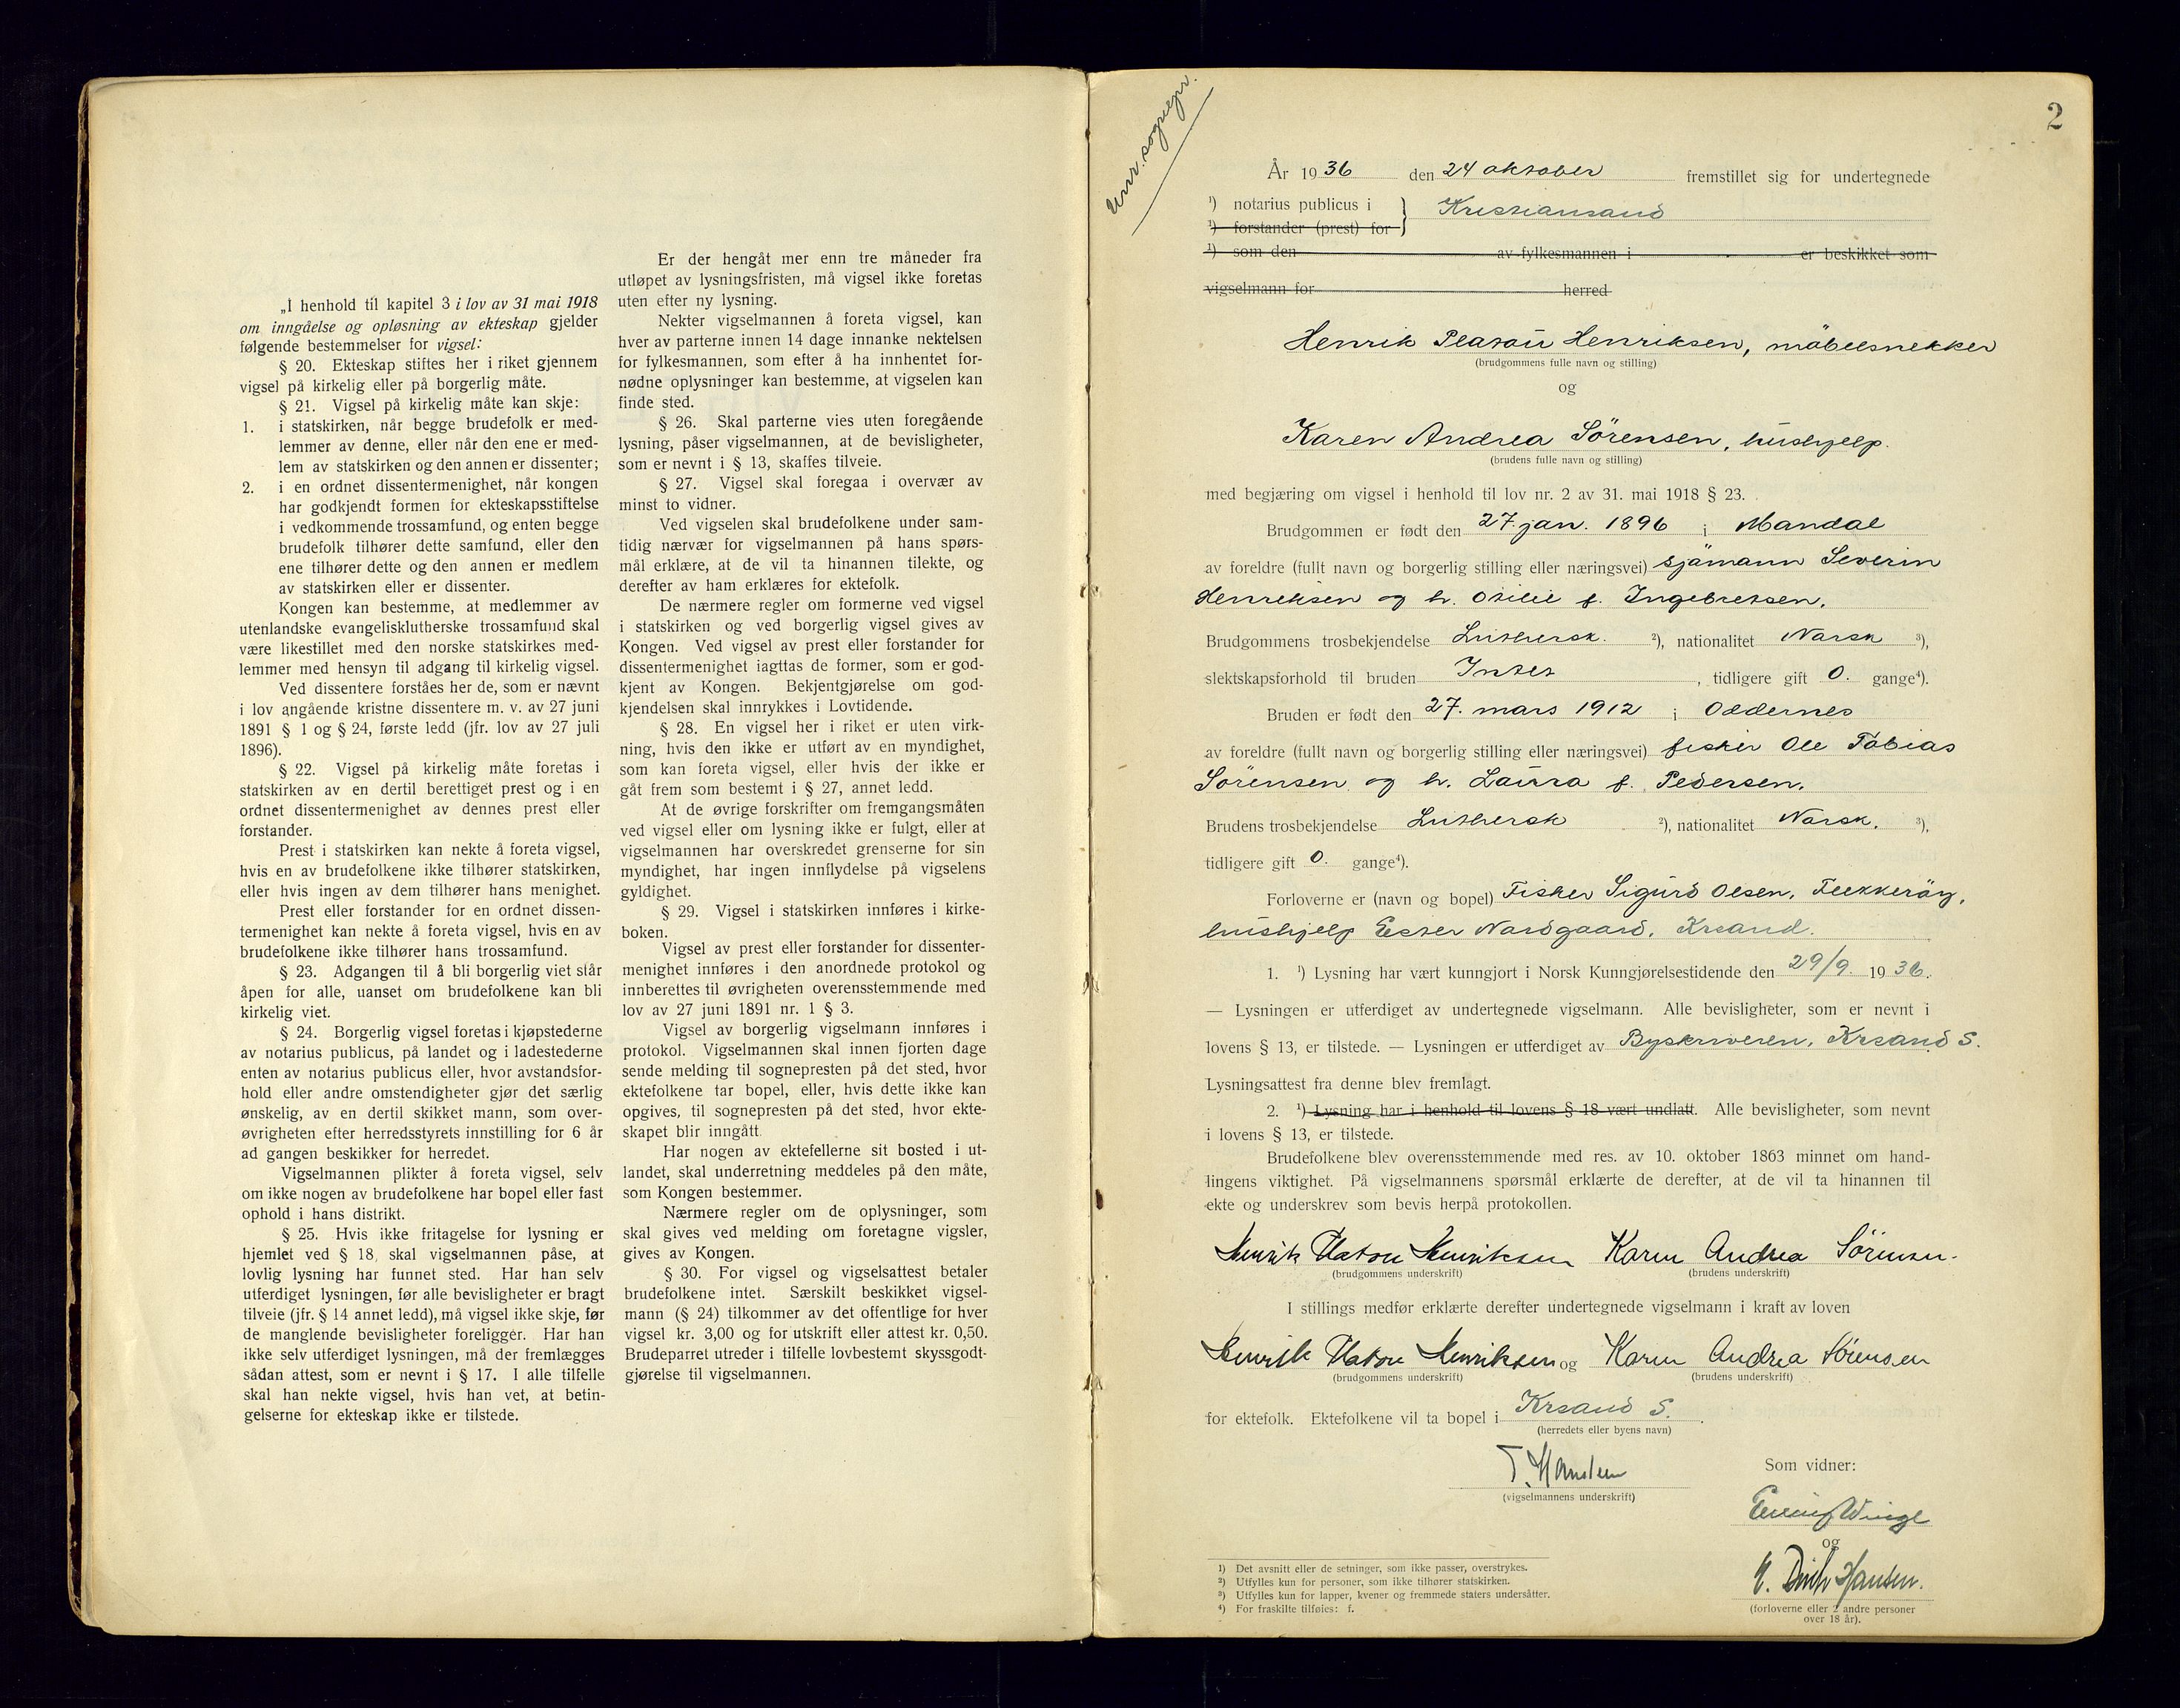 „I henhold til kapitel 3 i lov av 31 mai 1918
om inngåelse og opløsning av ekteskap gjelder
følgende bestemmelser for vigsel:
§ 20. Ekteskap stiftes her i riket gjennem
vigsel på kirkelig eller på borgerlig måte.
§ 21. Vigsel på kirkelig måte kan skje:
1. i statskirken, når begge brudefolk er med-
lemmer av denne, eller når den ene er med-
lem av statskirken og den annen er dissenter;
2. i en ordnet dissentermenighet, når kongen
har godkjendt formen for ekteskapsstiftelse
i vedkommende trossamfund, og enten begge
brudefolk tilhører dette samfund, eller den
ene tilhører dette og den annen er medlem
av statskirken eller er dissenter.
Kongen kan bestemme, at medlemmer av
utenlandske evangeliskluтherske trossamfund skal
være likestillet med den norske statskirkes med-
lemmer med hensyn til adgang til kirkelig vigsel.
Ved dissentere forståes her de, som er nævnt
i lov angående kristne dissentere m. v. av 27 juni
1891 § 1 og § 24, første ledd (jfr. lov av 27 juli
1896).
§ 22. Vigsel på kirkelig måte foretas i
statskirken av en dertil berettiget prest og i en
ordnet dissentermenighet av dennes prest eller
forstander.
Prest i statskirken kan nekte å foreta vigsel,
hvis en av brudefolkene ikke tilhører statskirken,
eller hvis ingen av dem tilhører hans menighet.
Prest eller forstander for en ordnet dissen-
termenighet kan nekte å foreta vigsel, hvis en av
brudefolkene ikke tilhører hans trossamfund.
§ 23. Adgangen til å bli borgerlig viet står
åpen for alle, uanset om brudefolkene kan bli
kirkelig viet.
§ 24. Borgerlig vigsel foretas i kjøpstederne
av notarius publicus, på landet og i ladestederne
enten av notarius publicus eller, hvor avstandsfor-
hold eller andre omstendigheter gjør det særlig
ønskelig, av en dertil skikket mann, som over-
øvrigheten efter herredsstyrets innstilling for 6 år
ad gangen beskikker for herredet.
Vigselmannen plikter å foreta vigsel, selv
om ikke nogen av brudefolkene har bopel eller fast
ophold i hans distrikt.
§ 25. Hvis ikke fritagelse for lysning er
hjemlet ved § 18, skal vigselmannen påse, at
lovlig lysning har funnet sted. Har han selv
utferdiget lysningen, før alle bevisligheter er bragt
tilveie (jfr. § 14 annet ledd), må vigsel ikke skje, før
de manglende bevisligheter foreligger. Har han
ikke selv utferdiget lysningen, må der fremlægges
sådan attest, som er nevnt i § 17. I alle tilfelle
skal han nekte vigsel, hvis han vet, at betin-
gelserne for ekteskap ikke er tilstede.
Er der hengåt mer enn tre måneder fra
utløpet av lysningsfristen, må vigsel ikke foretas
uten efter ny lysning.
Nekter vigselmannen å foreta vigsel, kan
hver av parterne innen 14 dage innanke nektelsen
for fylkesmannen, som efter å ha innhentet for-
nødne oplysninger kan bestemme, at vigselen kan
finde sted.
§ 26. Skal parterne vies uten foregående
lysning, påser vigselmannen, at de bevisligheter,
som er nevnt i § 13, skaffes tilveie.
§ 27. Vigsel skal foregaa i overvær av
minst to vidner.
Ved vigselen skal brudefolkene under sam-
tidig nærvær for vigselmannen på hans spørs-
mål erklære, at de vil ta hinannen tilekte, og
derefter av ham erklæres for ektefolk.
De nærmere regler om formerne ved vigsel
i statskirken og ved borgerlig vigsel gives av
Kongen. Ved vigsel av prest eller forstander for
dissentermenighet iagttas de former, som er god-
kjent av Kongen. Bekjentgjørelse om god-
kjendelsen skal innrykkes i Lovtidende.
§ 28. En vigsel her i riket er uten virk-
ning, hvis den ikke er utført av en myndighet,
som kan foreta vigsel, eller hvis der ikke er
gåt frem som bestemt i § 27, annet ledd.
At de øvrige forskrifter om fremgangsmåten
ved vigsel eller om lysning ikke er fulgt, eller at
vigselmannen har overskredet grenserne for sin
myndighet, har ingen innflydelse på vigselens
gyldighet.
§ 29. Vigsel i statskirken innføres i kirke-
boken.
Vigsel av prest eller forstander for dissenter-
menighet innføres i den anordnede protokol og
innberettes til øvrigheten overensstemmende med
lov av 27 juni 1891 nr. 1 § 3.
Vigsel av borgerlig vigselmann innføres i
protokol. Vigselmannen skal innen fjorten dage
sende melding til sognepresten på det sted, hvor
ektefolkene tar bopel, eller, hvis dette ikke kan
opgives, til sognepresten på det sted, hvor ekte-
skapet blir inngått.
Har nogen av ektefellerne sit bosted i ut-
landet, skal underretning meddeles på den måte,
som Kongen bestemmer.
Nærmere regler om de oplysninger, som
skal gives ved melding om foretagne vigsler,
gives av Kongen.
§ 30. For vigsel og vigselsattest betaler
brudefolkene intet. Særskilt beskikket vigsel-
mann (§ 24) tilkommer av det offentlige for hver
vigsel kr. 3,00 og for utskrift eller attest kr. 0,50.
Brudeparret utreder i tilfelle lovbestemt skyssgodt-
gjørelse til vigselmannen.
2
Unr. sognepr.
År 1936 den 24 oktober fremstillet sig for undertegnede
¹) notarius publicus i } Kristiansand
¹) forstander (prest) for
¹) som den av fylkesmannen i er beskikket som
vigselmann for herred
Henrik Platou Henriksen, möbelsnekker
(brudgommens fulle navn og stilling)
og
Karen Andrea Sörensen, hushjelp.
(brudens fulle navn og stilling)
med begjæring om vigsel i henhold til lov nr. 2 av 31. mai 1918 § 23.
Brudgommen er født den 27. jan. 1896 i Mandal
av foreldre (fullt navn og borgerlig stilling eller næringsvei) sjömann Severin
Henriksen og h. Otilie f. Ingebretsen.
Brudgommens trosbekjendelse Luthersk. ²), nationalitet Norsk ³),
slektskapsforhold til bruden Intet, tidligere gift 0. gange⁴).
Bruden er født den 27. mars 1912 i Oddernes
av foreldre (fullt navn og borgerlig stilling eller næringsvei) fisker Ole Tobias
Sörensen og h. Laura f. Pedersen.
Brudens trosbekjendelse Luthersk ²), nationalitet Norsk. ³),
tidligere gift 0. gange⁴).
Forloverne er (navn og bopel) Fisker Sigurd Olsen, Flekkeröy,
hushjelp Ester Nordgaard, Krsand.
1. ¹) Lysning har vært kunngjort i Norsk Kunngjørelsestidende den 29/9. 1936.
— Lysningen er utferdiget av undertegnede vigselmann. Alle bevisligheter, som er nevnt i
lovens § 13, er tilstede. — Lysningen er utferdiget av Byskriveren, Krsand S.
Lysningsattest fra denne blev fremlagt.
2. ¹) Lysning har i henhold til lovens § 18 vært undlatt. Alle bevisligheter, som nevnt
i lovens § 13, er tilstede.
Brudefolkene blev overensstemmende med res. av 10. oktober 1863 minnet om hand-
lingens viktighet. På vigselmannens spørsmål erklærte de derefter, at de vil ta hinannen til
ekte og underskrev som bevis herpå protokollen.
Henrik Platou Henriksen Karen Andrea Sörensen.
(brudgommens underskrift) (brudens underskrift)
I stillings medfør erklærte derefter undertegnede vigselmann i kraft av loven
Henrik Platou Henriksen og Karen Andrea Sörensen
(brudgommens underskrift) (brudens underskrift)
for ektefolk. Ektefolkene vil ta bopel i Krsand S.
(herredets eller byens navn)
(vigselmannens underskrift)
Som vidner:
og
Hansen.
(forloverne eller 2 andre personer
over 18 år).
¹) Det avsnitt eller de setninger, som ikke passer, overstrykes.
²) Utfylles kun for personer, som ikke tilhører statskirken.
³) Utfylles kun for lapper, kvener og fremmede staters undersåtter.
⁴) For fraskilte tilføies: f.